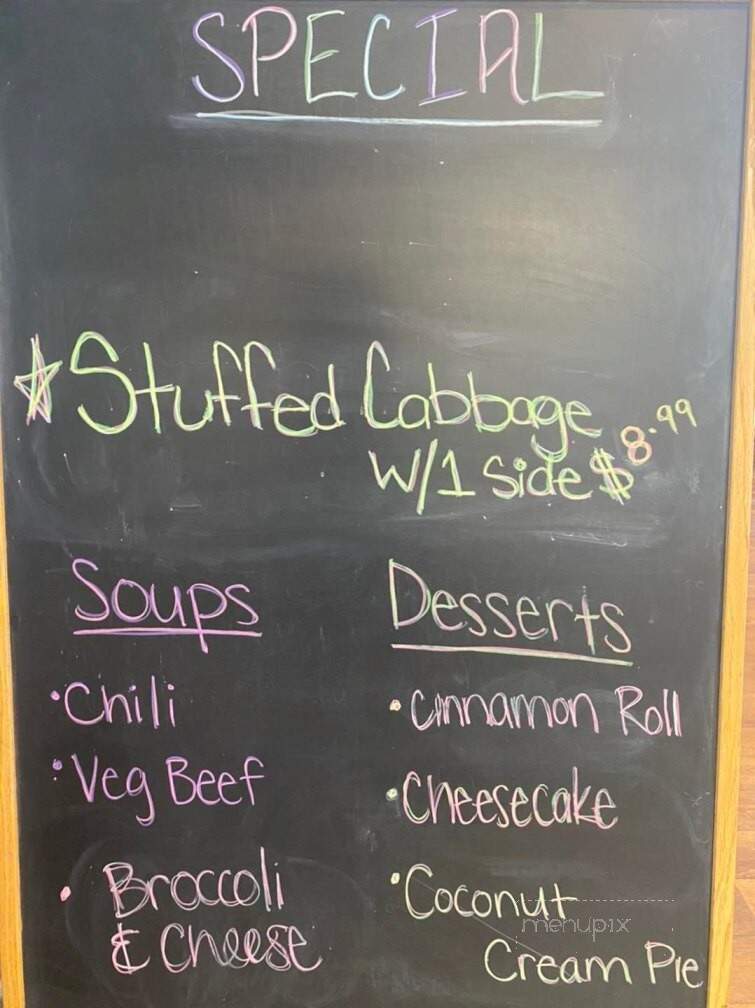 SPECIAL
☆ Stuffed Cabbage
W/1 Side $8.99
Soups
• Chili
• Veg Beef
• Broccoli
& Cheese
Desserts
• Cinnamon Roll
• Cheesecake
• Coconut
Cream Pie
menupix